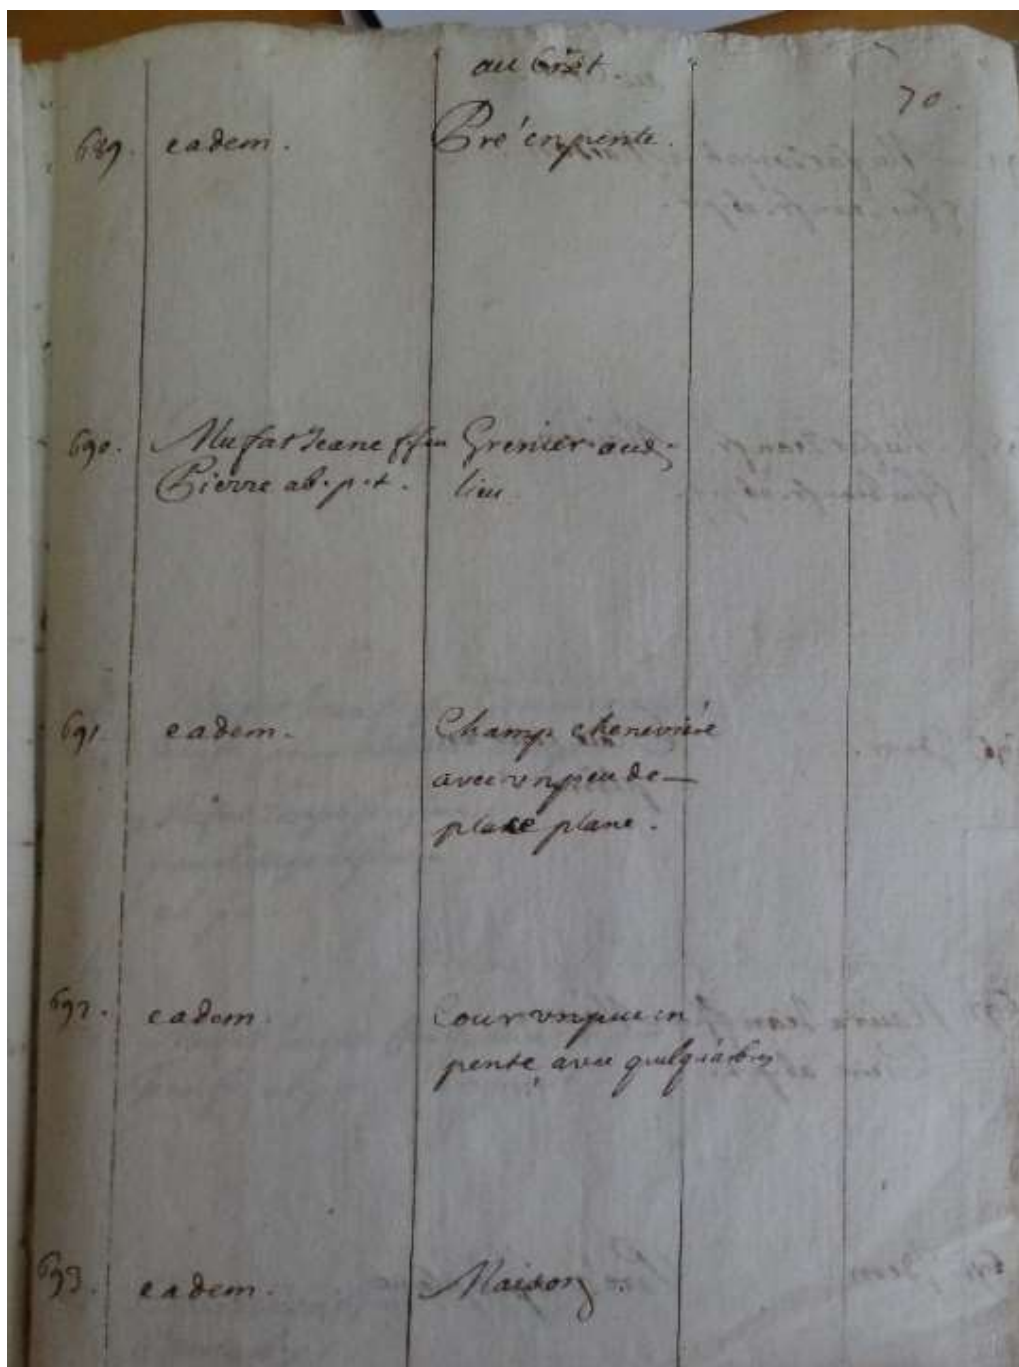 au Crêt.
70.
689. eadem. Pré en pente.
690. Mufat Jeane ffeu Grenier aud.
Pierre ab. p. t. lieu.
691. eadem. Champ chenevière
avec un peu de
place plane.
692. eadem. Cour un peu en
pente, avec quelq. arbres
693. eadem. Maison.